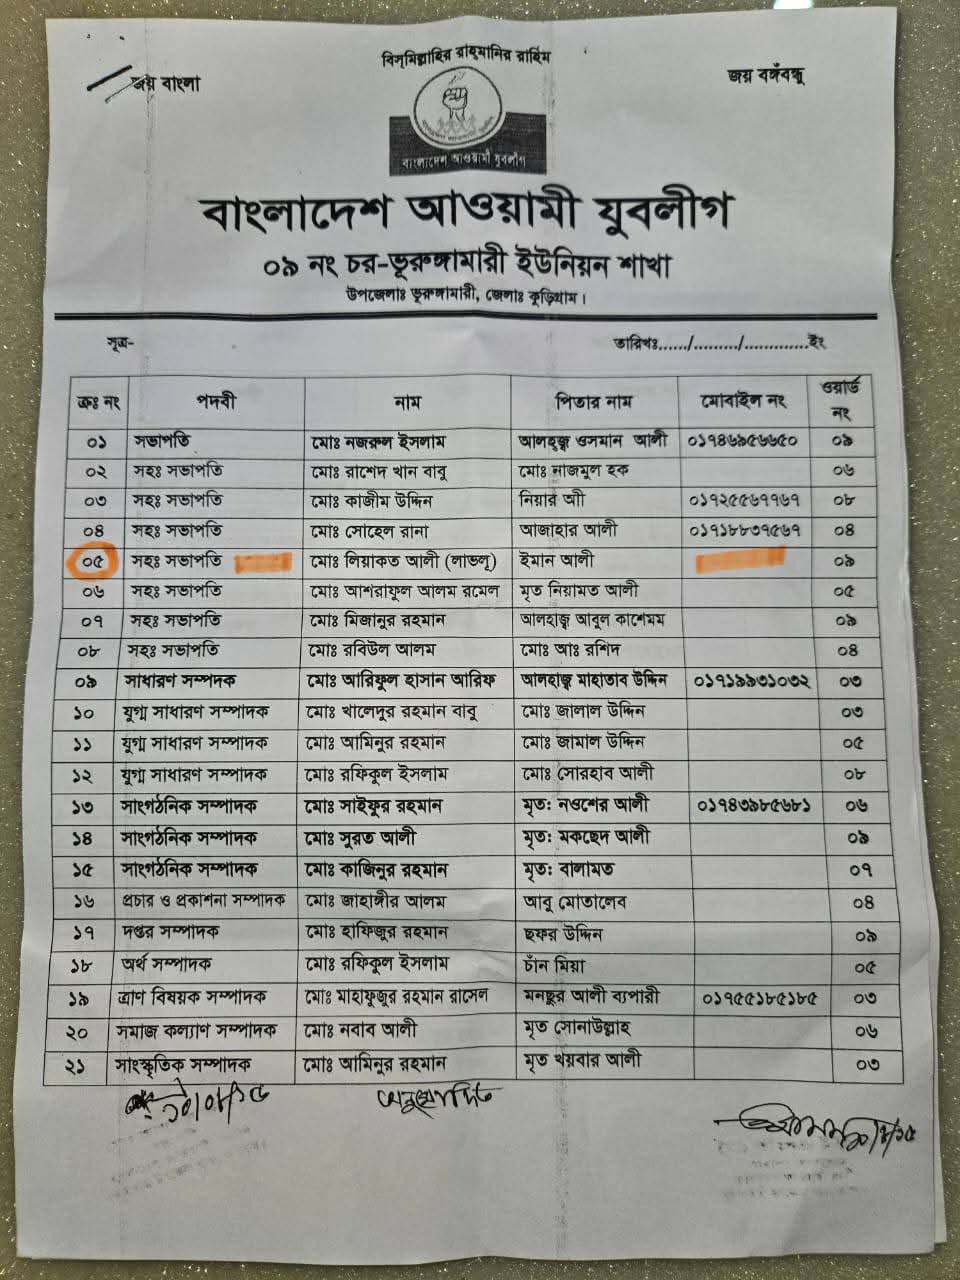 বিস্‌মিল্লাহির রাহ্‌মানির রাহিম
জয় বাংলা
জয় বঙ্গঁবন্ধু
বাংলাদেশ আওয়ামী যুবলীগ
বাংলাদেশ আওয়ামী যুবলীগ
০৯ নং চর-ভূরুঙ্গামারী ইউনিয়ন শাখা
উপজেলাঃ ভূরুঙ্গামারী, জেলাঃ কুড়িগ্রাম।
সূত্র- তারিখঃ....../........./.............ইং
ক্রঃ নং পদবী নাম পিতার নাম মোবাইল নং ওয়ার্ড নং
০১ সভাপতি মোঃ নজরুল ইসলাম আলহাজ্ব ওসমান আলী ০১৭৪৬৯৫৬৬৫০ ০৯
০২ সহঃ সভাপতি মোঃ রাশেদ খান বাবু মোঃ নাজমুল হক ০৬
০৩ সহঃ সভাপতি মোঃ কাজীম উদ্দিন নিয়ার আী ০১৭২৫৫৬৭৭৬৭ ০৮
০৪ সহঃ সভাপতি মোঃ সোহেল রানা আজাহার আলী ০১৭১৮৮৩৭৫৬৭ ০৪
০৫ সহঃ সভাপতি মোঃ লিয়াকত আলী (লাভলু) ইমান আলী ০৯
০৬ সহঃ সভাপতি মোঃ আশরাফুল আলম রমেল মৃত নিয়ামত আলী ০৫
০৭ সহঃ সভাপতি মোঃ মিজানুর রহমান আলহাজ্ব আবুল কাশেমম ০৯
০৮ সহঃ সভাপতি মোঃ রবিউল আলম মোঃ আঃ রশিদ ০৪
০৯ সাধারণ সম্পাদক মোঃ আরিফুল হাসান আরিফ আলহাজ্ব মাহাতাব উদ্দিন ০১৭১৯৯৩১০৩২ ০৩
১০ যুগ্ম সাধারণ সম্পাদক মোঃ খালেদুর রহমান বাবু মোঃ জালাল উদ্দিন ০৩
১১ যুগ্ম সাধারণ সম্পাদক মোঃ আমিনুর রহমান মোঃ জামাল উদ্দিন ০৫
১২ যুগ্ম সাধারণ সম্পাদক মোঃ রফিকুল ইসলাম মোঃ সোরহাব আলী ০৮
১৩ সাংগঠনিক সম্পাদক মোঃ সাইফুর রহমান মৃত: নওশের আলী ০১৭৪৩৯৮৫৬৮১ ০৬
১৪ সাংগঠনিক সম্পাদক মোঃ সুরত আলী মৃত: মকছেদ আলী ০৯
১৫ সাংগঠনিক সম্পাদক মোঃ কাজিনুর রহমান মৃত: বালামত ০৭
১৬ প্রচার ও প্রকাশনা সম্পাদক মোঃ জাহাঙ্গীর আলম আবু মোতালেব ০৪
১৭ দপ্তর সম্পাদক মোঃ হাফিজুর রহমান ছফর উদ্দিন ০৯
১৮ অর্থ সম্পাদক মোঃ রফিকুল ইসলাম চাঁন মিয়া ০৫
১৯ ত্রাণ বিষয়ক সম্পাদক মোঃ মাহাফুজুর রহমান রাসেল মনছুর আলী ব্যপারী ০১৭৫৫১৮৫১৮৫ ০৩
২০ সমাজ কল্যাণ সম্পাদক মোঃ নবাব আলী মৃত সোনাউল্লাহ ০৬
২১ সাংস্কৃতিক সম্পাদক মোঃ আমিনুর রহমান মৃত খয়বার আলী ০৩
অনুমোদিত